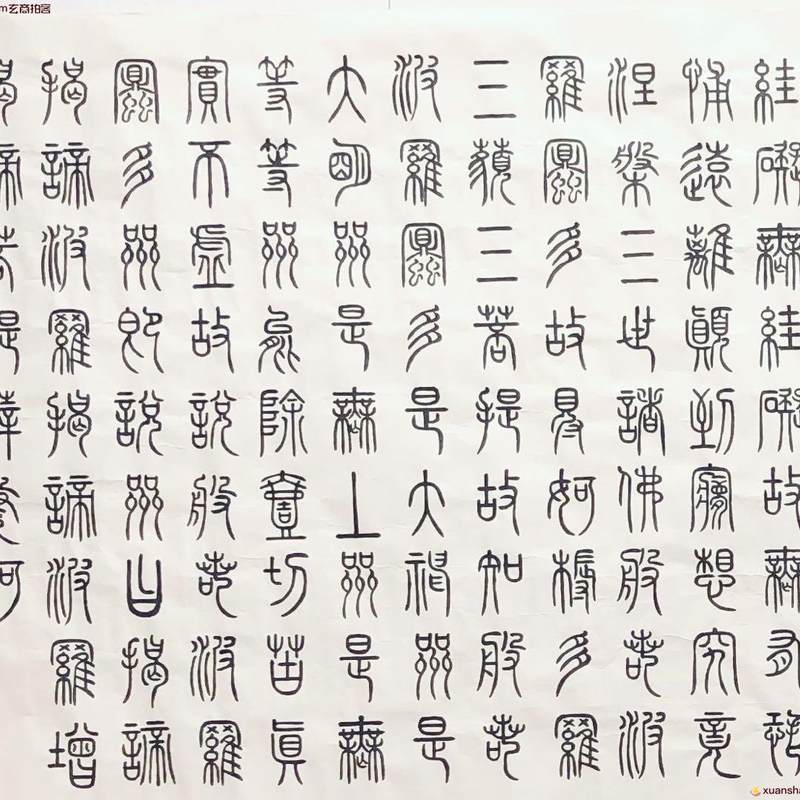 絓礙無絓礙故無有恐
怖遠離顛倒夢想究竟
涅槃三世諸佛般若波
羅蜜多故得阿耨多羅
三藐三菩提故知般若
波羅蜜多是大神咒是
大明咒是無上咒是無
等等咒能除壹切苦真
實不虛故說般若波羅
蜜多咒即說咒曰揭諦
揭諦波羅揭諦波羅增
揭諦菩提薩婆訶
xuansha